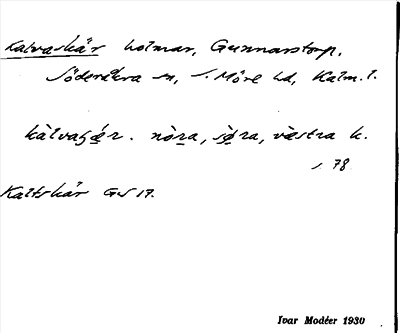 Kalvaskär holmar, Gunnarstorp,
Söderåkra sn, S. Möre hd, Kalm. l.
kàlvaʂǽr. nòra, sø̀ra, vèstra k.
s. 78
Kaltskär GS 17.
Ivar Modéer 1930